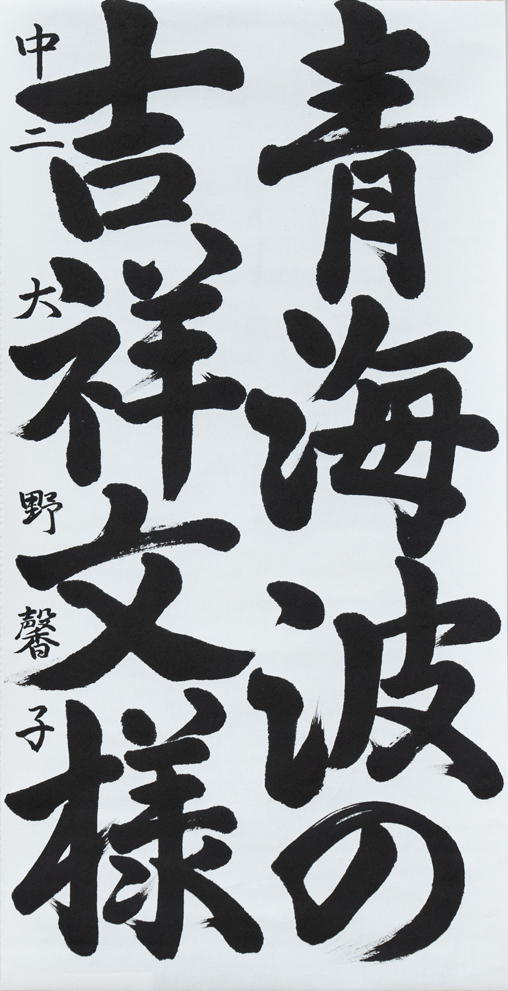 青海波の
吉祥文様
中二 大野馨子